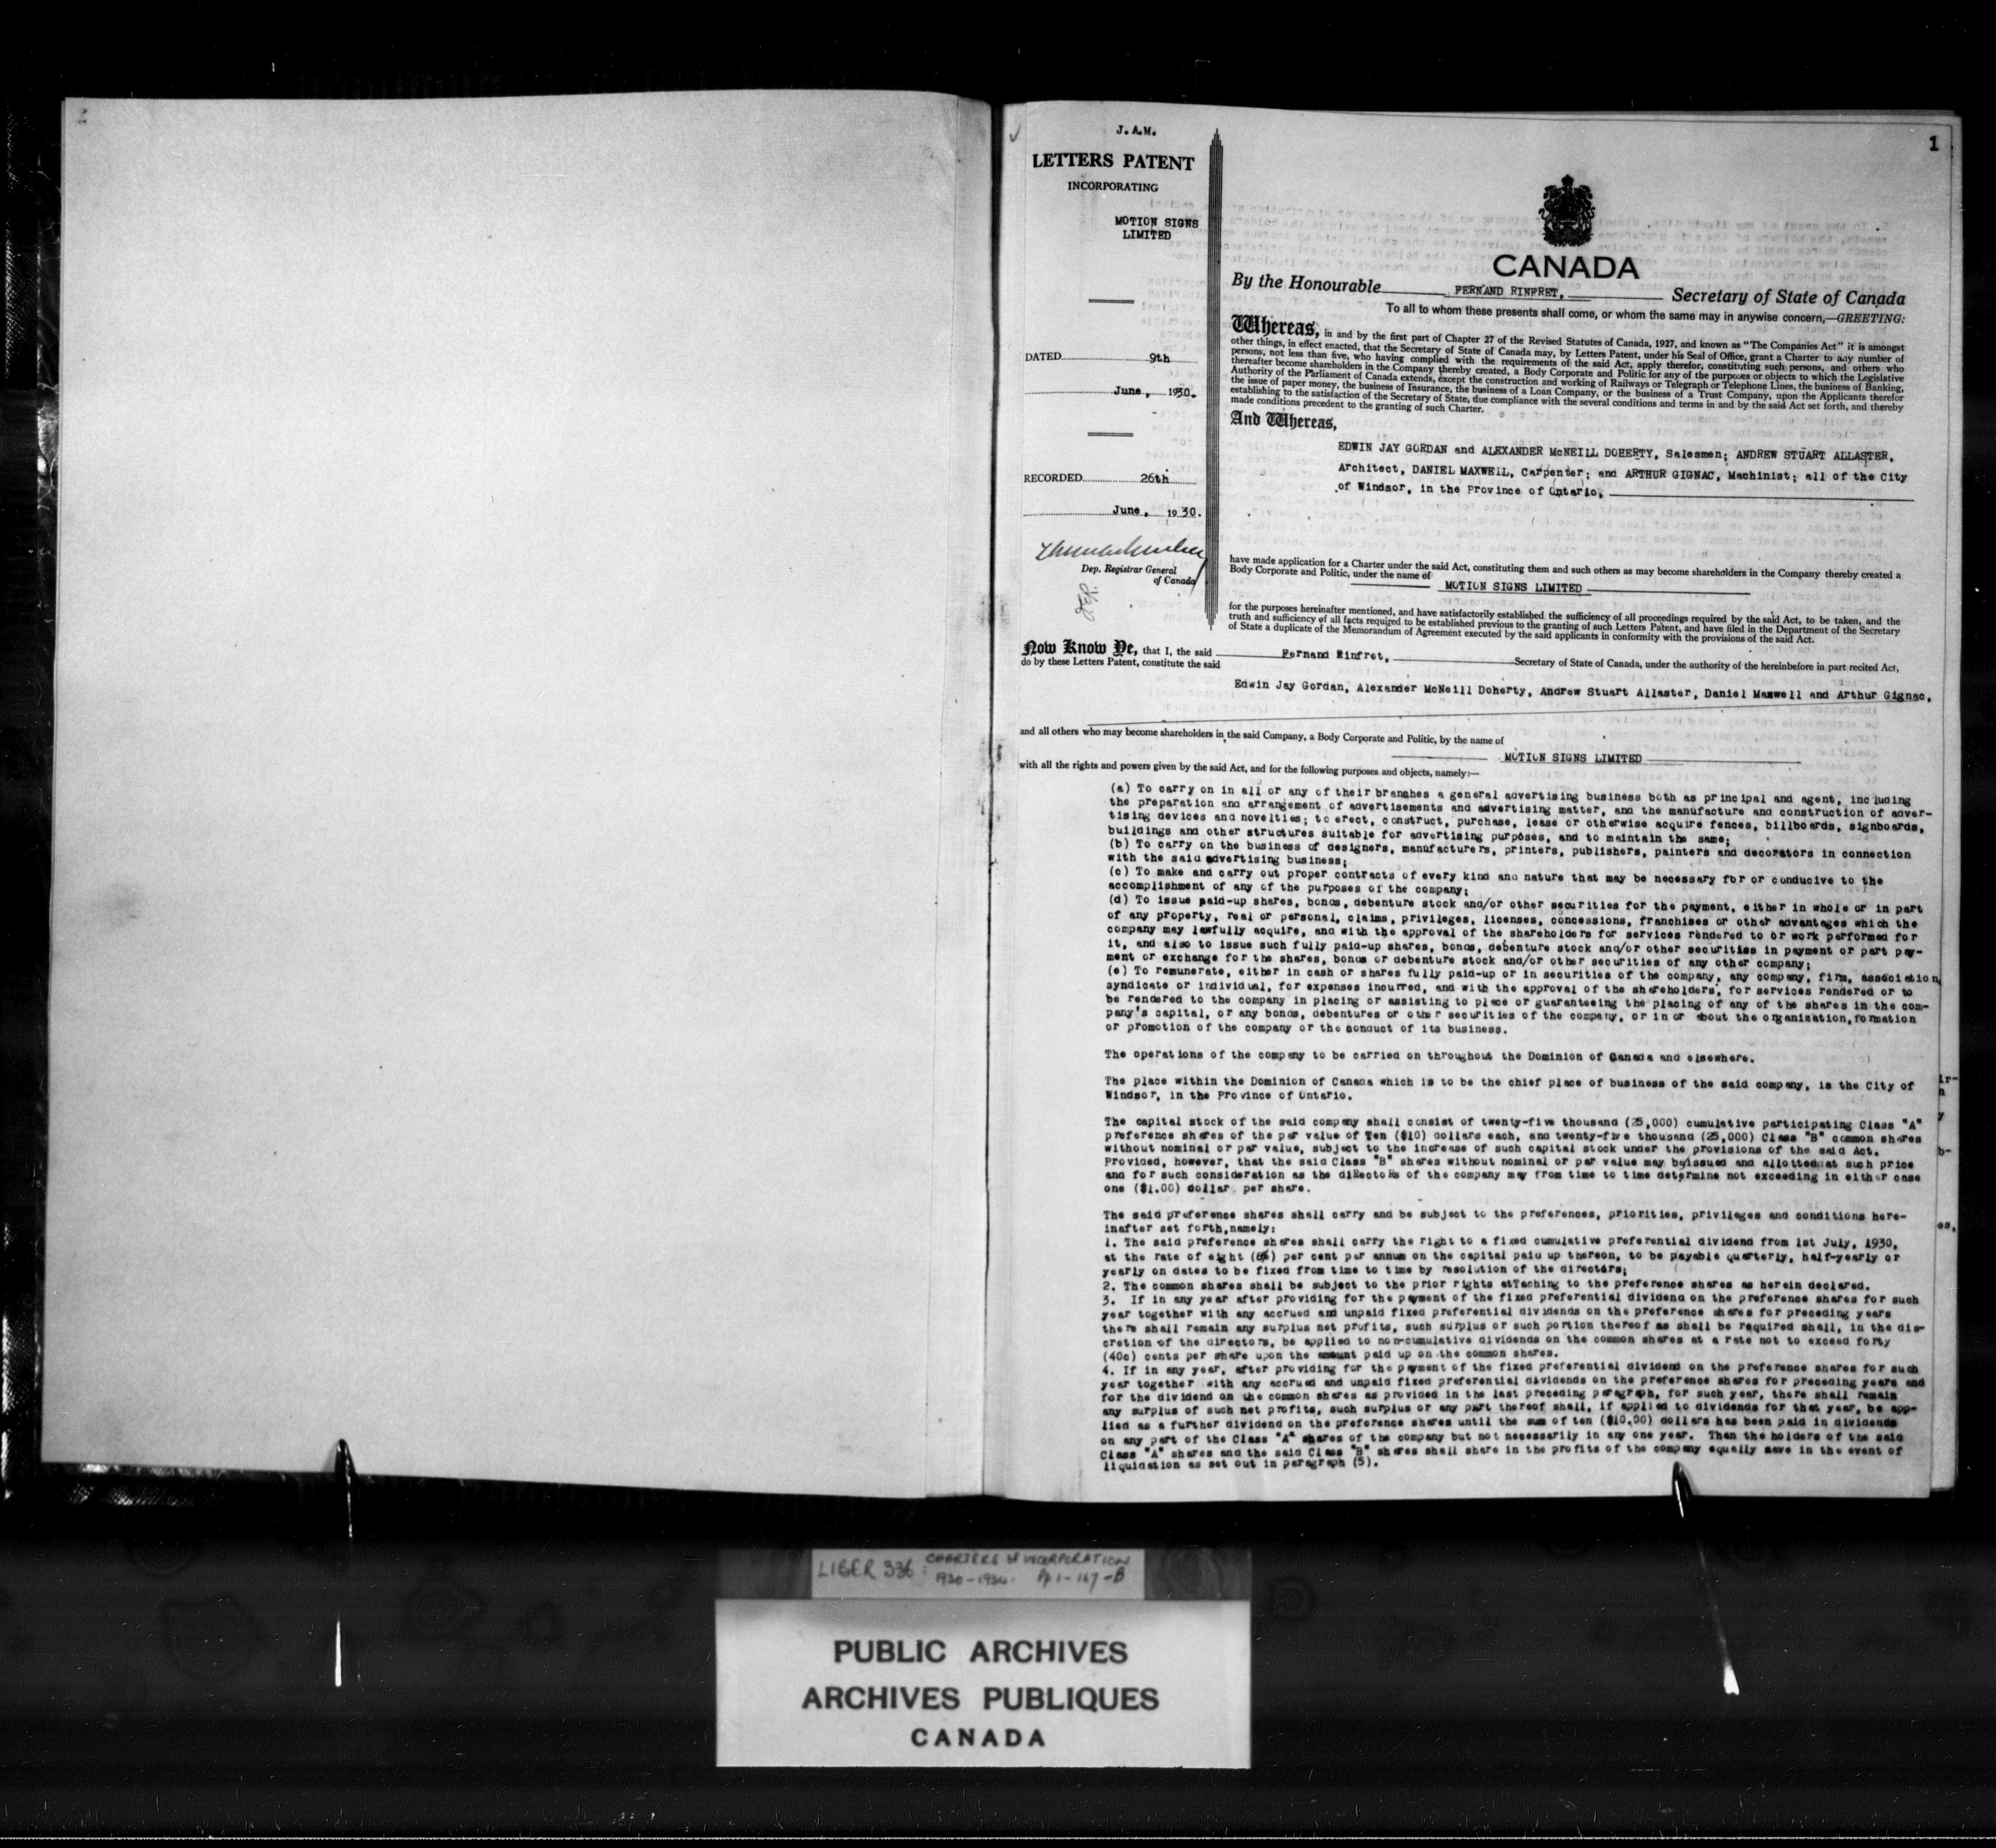 1
J. A.M.
LETTERS PATENT
INCORPORATING
MOTION SIGNS
LIMITED
DATED 9th
June, 1930.
RECORDED 26th
June, 19 30.
Dep. Registrar General
of Canada
CANADA
By the Honourable FERNAND RINFRET, Secretary of State of Canada
To all to whom these presents shall come, or whom the same may in anywise concern,—GREETING:
Whereas, in and by the first part of Chapter 27 of the Revised Statutes of Canada, 1927, and known as "The Companies Act" it is amongst
other things, in effect enacted, that the Secretary of State of Canada may, by Letters Patent, under his Seal of Office, grant a Charter to any number of
persons, not less than five, who having complied with the requirements of the said Act, apply therefor, constituting such persons, and others who
thereafter become shareholders in the Company thereby created, a Body Corporate and Politic for any of the purposes or objects to which the Legislative
Authority of the Parliament of Canada extends, except the construction and working of Railways or Telegraph or Telephone Lines, the business of Banking,
the issue of paper money, the business of Insurance, the business of a Loan Company, or the business of a Trust Company, upon the Applicants therefor
establishing to the satisfaction of the Secretary of State, due compliance with the several conditions and terms in and by the said Act set forth, and thereby
made conditions precedent to the granting of such Charter.
And Whereas,
EDWIN JAY GORDAN and ALEXANDER McNEILL DOHERTY, Salesmen; ANDREW STUART ALLASTER,
Architect, DANIEL MAXWELL, Carpenter; and ARTHUR GIGNAC, Machinist; all of the City
of Windsor, in the Province of Ontario,
have made application for a Charter under the said Act, constituting them and such others as may become shareholders in the Company thereby created a
Body Corporate and Politic, under the name of
MOTION SIGNS LIMITED
for the purposes hereinafter mentioned, and have satisfactorily established the sufficiency of all proceedings required by the said Act, to be taken, and the
truth and sufficiency of all facts required to be established previous to the granting of such Letters Patent, and have filed in the Department of the Secretary
of State a duplicate of the Memorandum of Agreement executed by the said applicants in conformity with the provisions of the said Act.
Now Know Ye, that I, the said Fernand Rinfret, Secretary of State of Canada, under the authority of the hereinbefore in part recited Act,
do by these Letters Patent, constitute the said
Edwin Jay Gordan, Alexander McNeill Doherty, Andrew Stuart Allaster, Daniel Maxwell and Arthur Gignac,
and all others who may become shareholders in the said Company, a Body Corporate and Politic, by the name of
MOTION SIGNS LIMITED
with all the rights and powers given by the said Act, and for the following purposes and objects, namely:—
(a) To carry on in all or any of their branches a general advertising business both as principal and agent, including
the preparation and arrangement of advertisements and advertising matter, and the manufacture and construction of adver-
tising devices and novelties; to erect, construct, purchase, lease or otherwise acquire fences, billboards, signboards,
buildings and other structures suitable for advertising purposes, and to maintain the same;
(b) To carry on the business of designers, manufacturers, printers, publishers, painters and decorators in connection
with the said advertising business;
(c) To make and carry out proper contracts of every kind and nature that may be necessary for or conducive to the
accomplishment of any of the purposes of the company;
(d) To issue paid-up shares, bonds, debenture stock and/or other securities for the payment, either in whole or in part
of any property, real or personal, claims, privileges, licenses, concessions, franchises or other advantages which the
company may lawfully acquire, and with the approval of the shareholders for services rendered to or work performed for
it, and also to issue such fully paid-up shares, bonds, debenture stock and/or other securities in payment or part pay-
ment or exchange for the shares, bonds or debenture stock and/or other securities of any other company;
(e) To remunerate, either in cash or shares fully paid-up or in securities of the company, any company, firm, association,
syndicate or individual, for expenses incurred, and with the approval of the shareholders, for services rendered or to
be rendered to the company in placing or assisting to place or guaranteeing the placing of any of the shares in the com-
pany's capital, or any bonds, debentures or other securities of the company, or in or about the organization, formation
or promotion of the company or the conduct of its business.
The operations of the company to be carried on throughout the Dominion of Canada and elsewhere.
The place within the Dominion of Canada which is to be the chief place of business of the said company, is the City of
Windsor, in the Province of Ontario.
The capital stock of the said company shall consist of twenty-five thousand (25,000) cumulative participating Class "A"
preference shares of the par value of Ten ($10) dollars each, and twenty-five thousand (25,000) Class "B" common shares
without nominal or par value, subject to the increase of such capital stock under the provisions of the said Act.
Provided, however, that the said Class "B" shares without nominal or par value may by issued and allotted at such price
and for such consideration as the diRectoRs of the company may from time to time determine not exceeding in either case
one ($1.00) dollar per share.
The said preference shares shall carry and be subject to the preferences, priorities, privileges and conditions here-
inafter set forth,namely:
1. The said preference shares shall carry the right to a fixed cumulative preferential dividend from 1st July, 1930,
at the rate of eight (8%) per cent per annum on the capital paid up thereon, to be payable quarterly, half-yearly or
yearly on dates to be fixed from time to time by resolution of the directors;
2. The common shares shall be subject to the prior rights atTaching to the preference shares as herein declared.
3. If in any year after providing for the payment of the fixed preferential dividend on the preference shares for such
year together with any accrued and unpaid fixed preferential dividends on the preference shares for preceding years
there shall remain any surplus net profits, such surplus or such portion thereof as shall be required shall, in the dis-
cretion of the directors, be applied to non-cumulative dividends on the common shares at a rate not to exceed forty
(40c) cents per share upon the amount paid up on the common shares.
4. If in any year, after providing for the payment of the fixed preferential dividend on the preference shares for such
year together with any accrued and unpaid fixed preferential dividends on the preference shares for preceding years and
for the dividend on the common shares as provided in the last preceding paragraph, for such year, there shall remain
any surplus of such net profits, such surplus or any part thereof shall, if applied to dividends for that year, be app-
lied as a further dividend on the preference shares until the sum of ten ($10.00) dollars has been paid in dividends
on any part of the Class "A" shares of the company but not necessarily in any one year. Than the holders of the said
Class "A" shares and the said Class "B" shares shall share in the profits of the company equally save in the event of
liquidation as set out in paragraph (5).
LIBER 336: CHARTERS OF INCORPORATION
1930-1934. Pp 1-167-B
PUBLIC ARCHIVES
ARCHIVES PUBLIQUES
CANADA